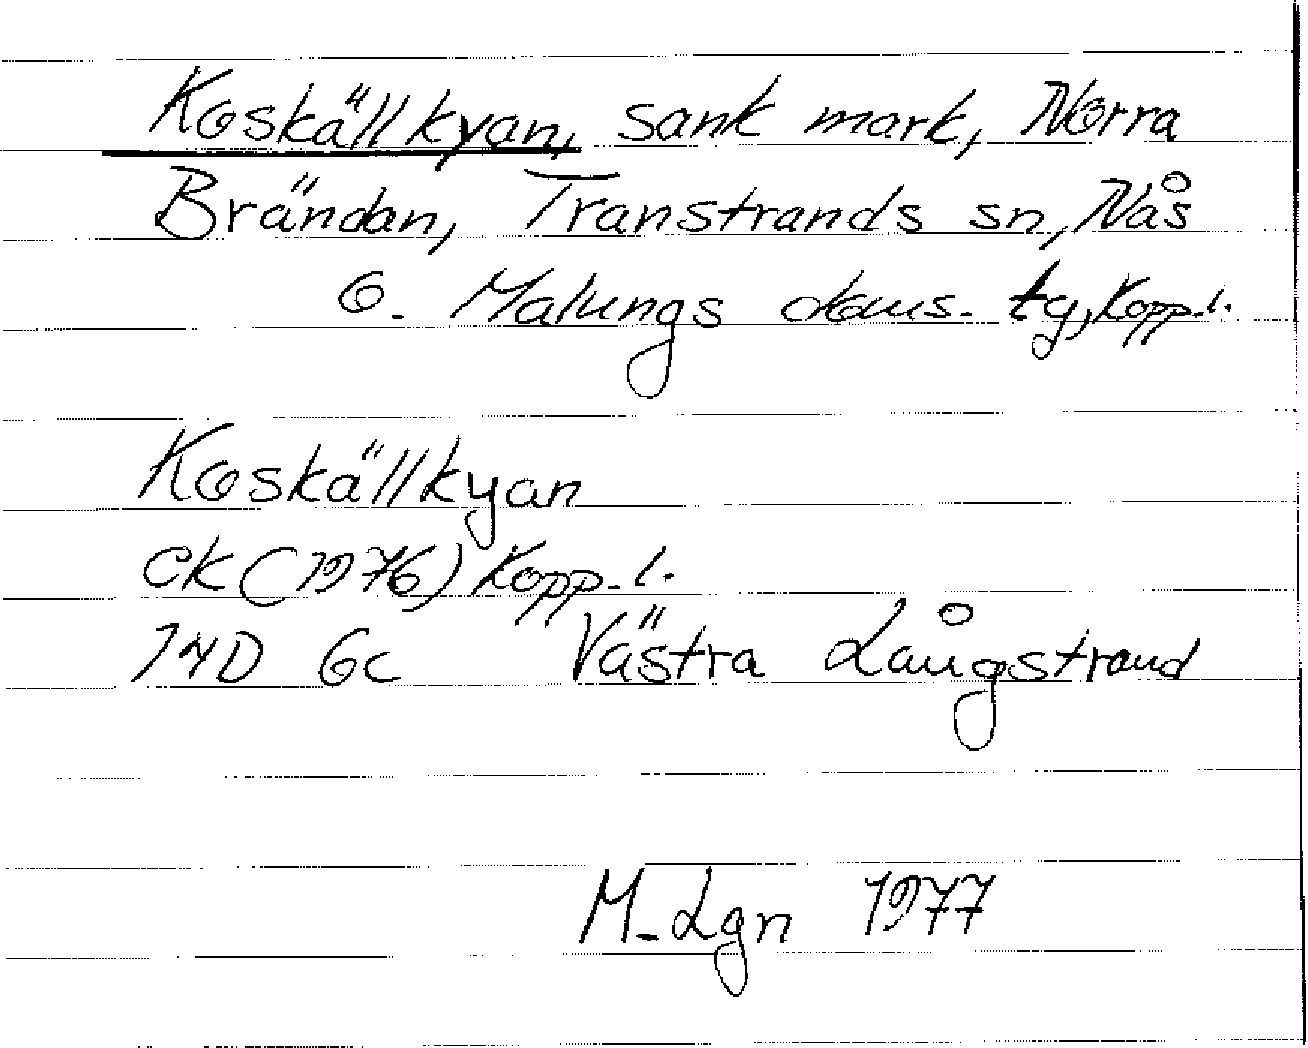 Koskällkyan, sank mark, Norra
Brändan, Transtrands sn, Nås
o. Malungs doms. tg, Kopp. l.
Koskällkyan
EK (1976) Kopp. l.
14D 6c Västra Långstrand
M. Lgn 1977